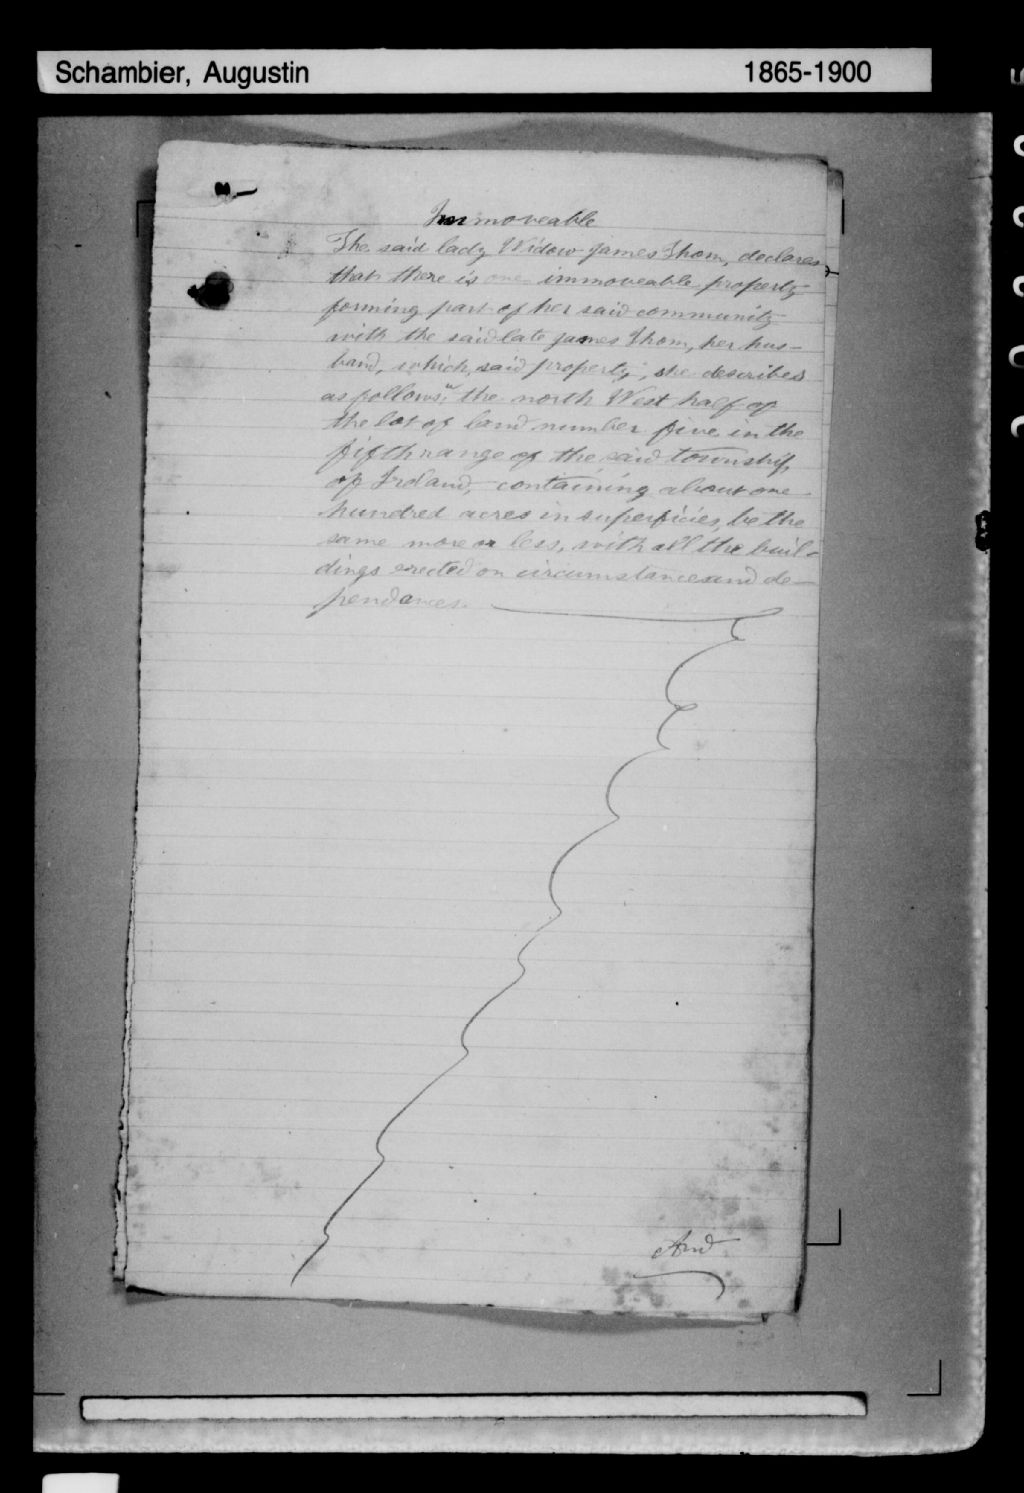 Schambier, Augustin 1865-1900
Immoveable
The said lady Widow James Thom, declares
that there is one immoveable property
forming part of her said community
with the said late James Thom, her hus-
band, which said property, she describes
as follows: the north West half of
the lot of land number five in the
fifth range of the said township
of Ireland, containing about one
hundred acres in superficies, be the
same more or less, with all the buil-
dings erected on circumstances and de-
pendances.
And